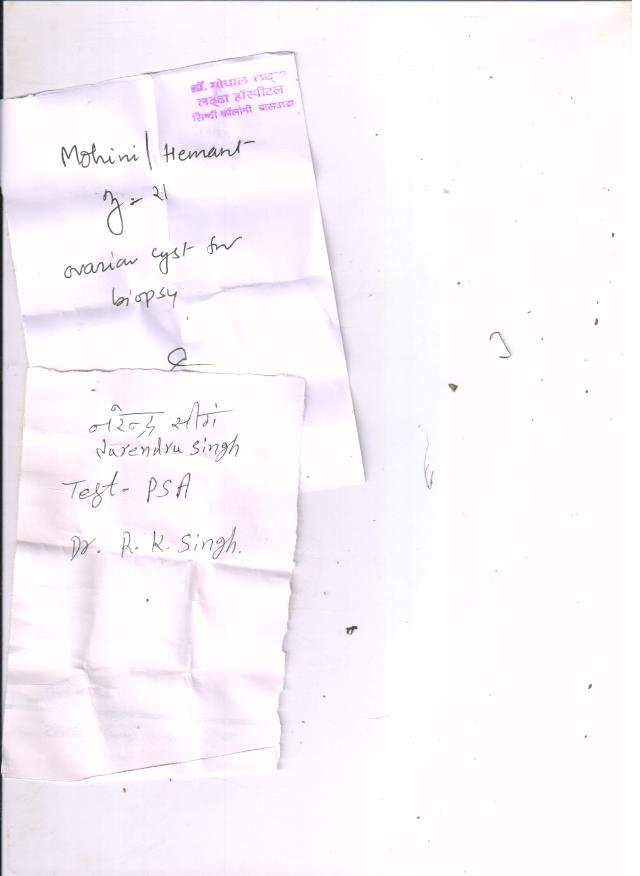 डॉ. गोपाल लद्
लद्ढा हॉस्पीटल
सिन्धी कॉलोनी बासवाडा
Mohini / Hemant
21
ovarian cyst for
biopsy
नरेन्द्र सींग
Narendru Singh
Test - PSA
Dr. R. K. Singh.